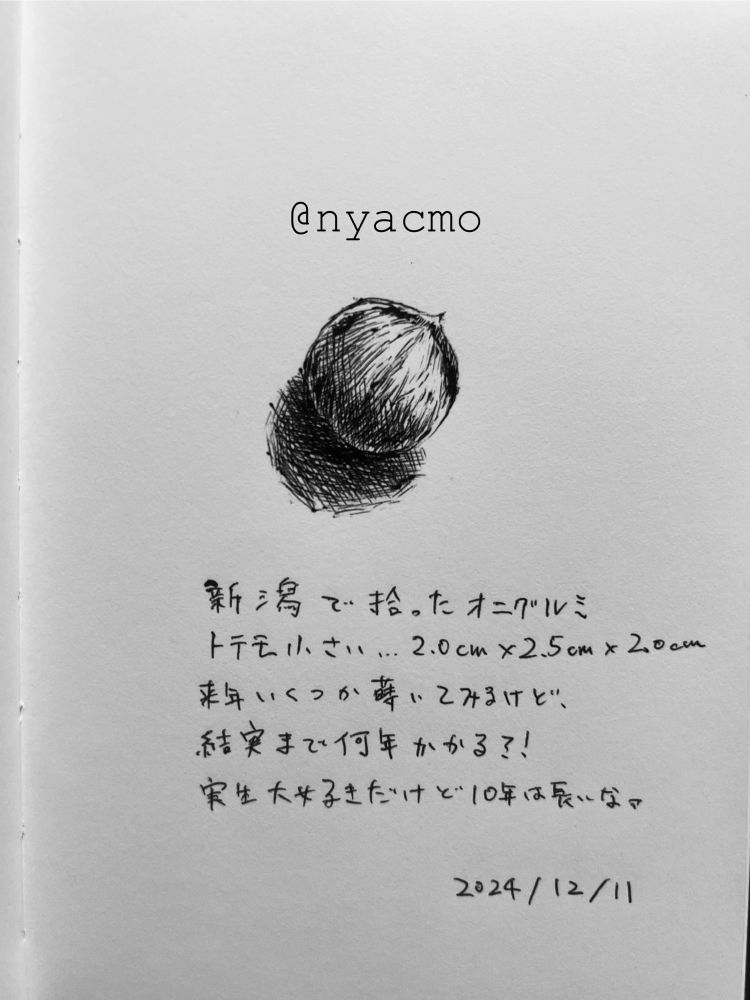 @nyacmo
新潟で拾ったオニグルミ
トテモ小さい…2.0cm×2.5cm×2.0cm
来年いくつか蒔いてみるけど、
結実まで何年かかる?!
実生大好きだけど10年は長いなァ
2024/12/11